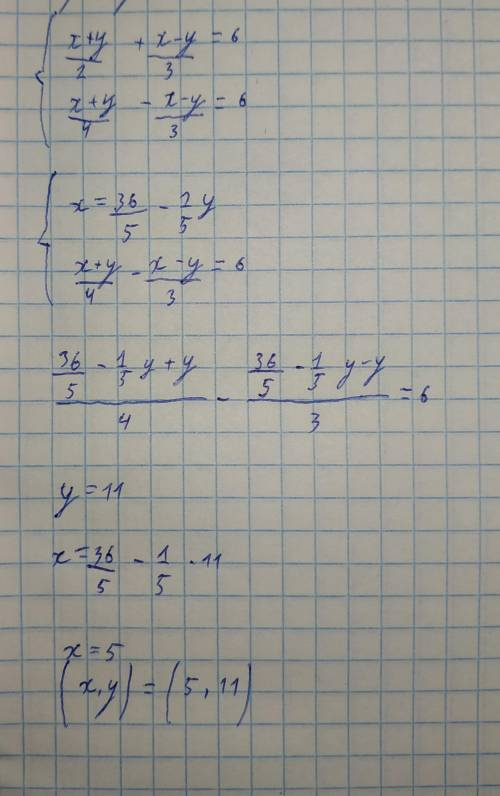 x+y/2 + x-y/3 = 6
x+y/4 - x-y/3 = 6
x = 36/5 - 1/5 y
x+y/4 - x-y/3 = 6
36/5 - 1/5 y + y/4 - 36/5 - 1/5 y - y/3 = 6
y = 11
x = 36/5 - 1/5 · 11
x = 5
(x, y) = (5, 11)